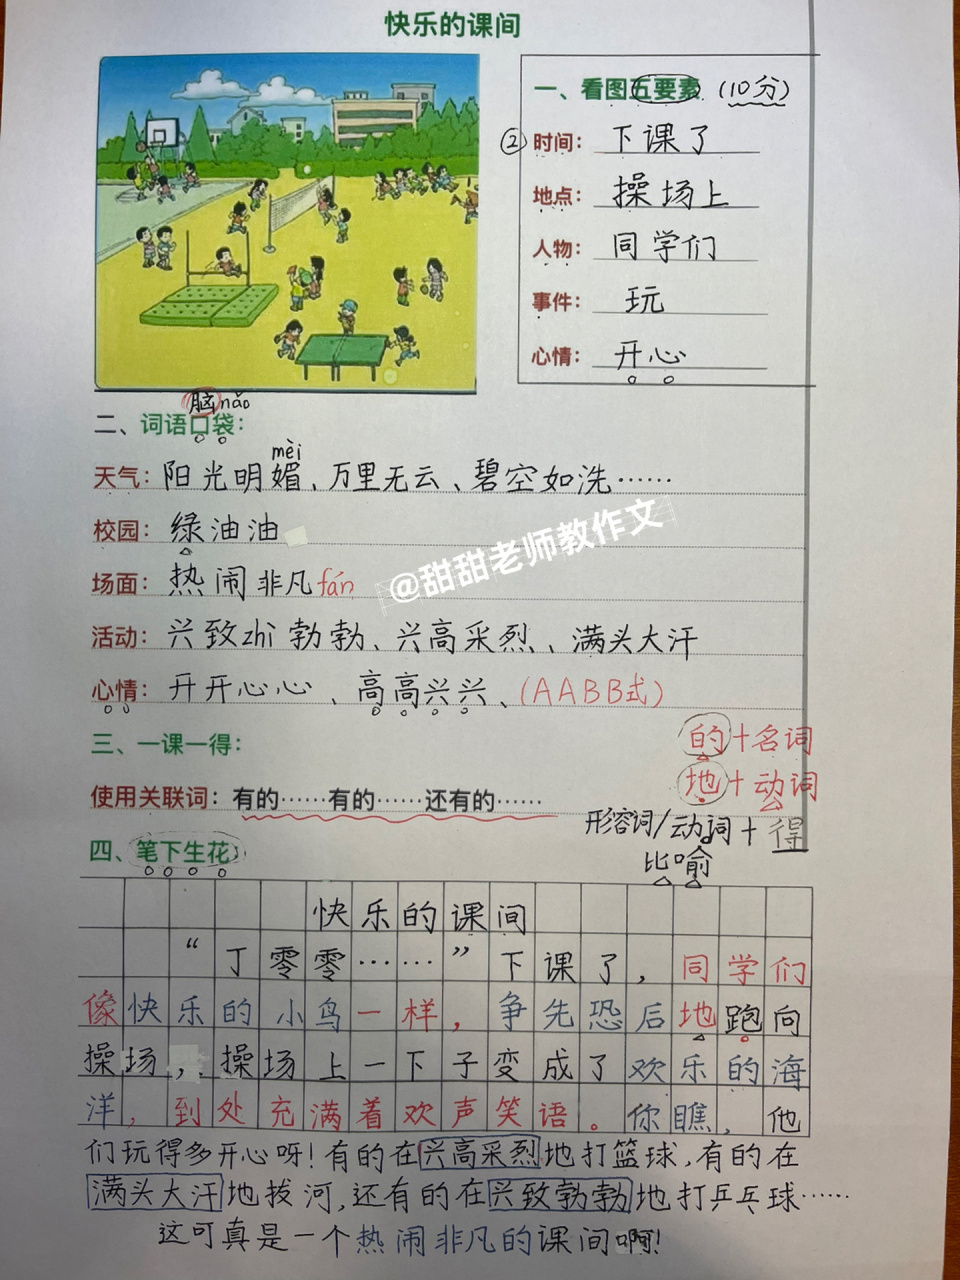 快乐的课间
一、看图五要素 (10分)
② 时间：下课了
地点：操场上
人物：同学们
事件：玩
心情：开心
脑nǎo
二、词语口袋：
mèi
天气：阳光明媚、万里无云、碧空如洗……
校园：绿油油
@甜甜老师教作文
场面：热闹非凡fán
活动：兴致zhì勃勃、兴高采烈、满头大汗
心情：开开心心、高高兴兴、(AABB式)
三、一课一得：
的+名词
地+动词
使用关联词：有的……有的……还有的……
形容词/动词+得
比喻
四、笔下生花
快乐的课间
“丁零零……”下课了，同学们
像快乐的小鸟一样，争先恐后地跑向
操场，操场上一下子变成了欢乐的海
洋，到处充满着欢声笑语。你瞧，他
们玩得多开心呀！有的在兴高采烈地打篮球，有的在
满头大汗地拔河，还有的在兴致勃勃地打乒乓球……
这可真是一个热闹非凡的课间啊！